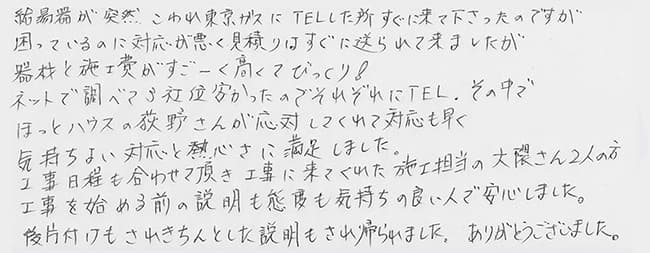 給湯器が突然こわれ東京ガスにTELした所すぐに来て下さったのですが
困っているのに対応が悪く見積りはすぐに送られて来ましたが
器材と施工費がすごーく高くてびっくり!
ネットで調べて3社位客かったのでそれぞれにTEL.その中で
ほっとハウスの荻野さんが応対してくれて対応も早く
気持ちよい対応と熱心さに満足しました。
工事日程も合わせて頂き工事に来てくれた施工担当の大隅さん2人の方
工事を始める前の説明も態度も気持ちの良い人で安心しました。
後片付けもされきちんとした説明もされ帰られました。ありがとうございました。